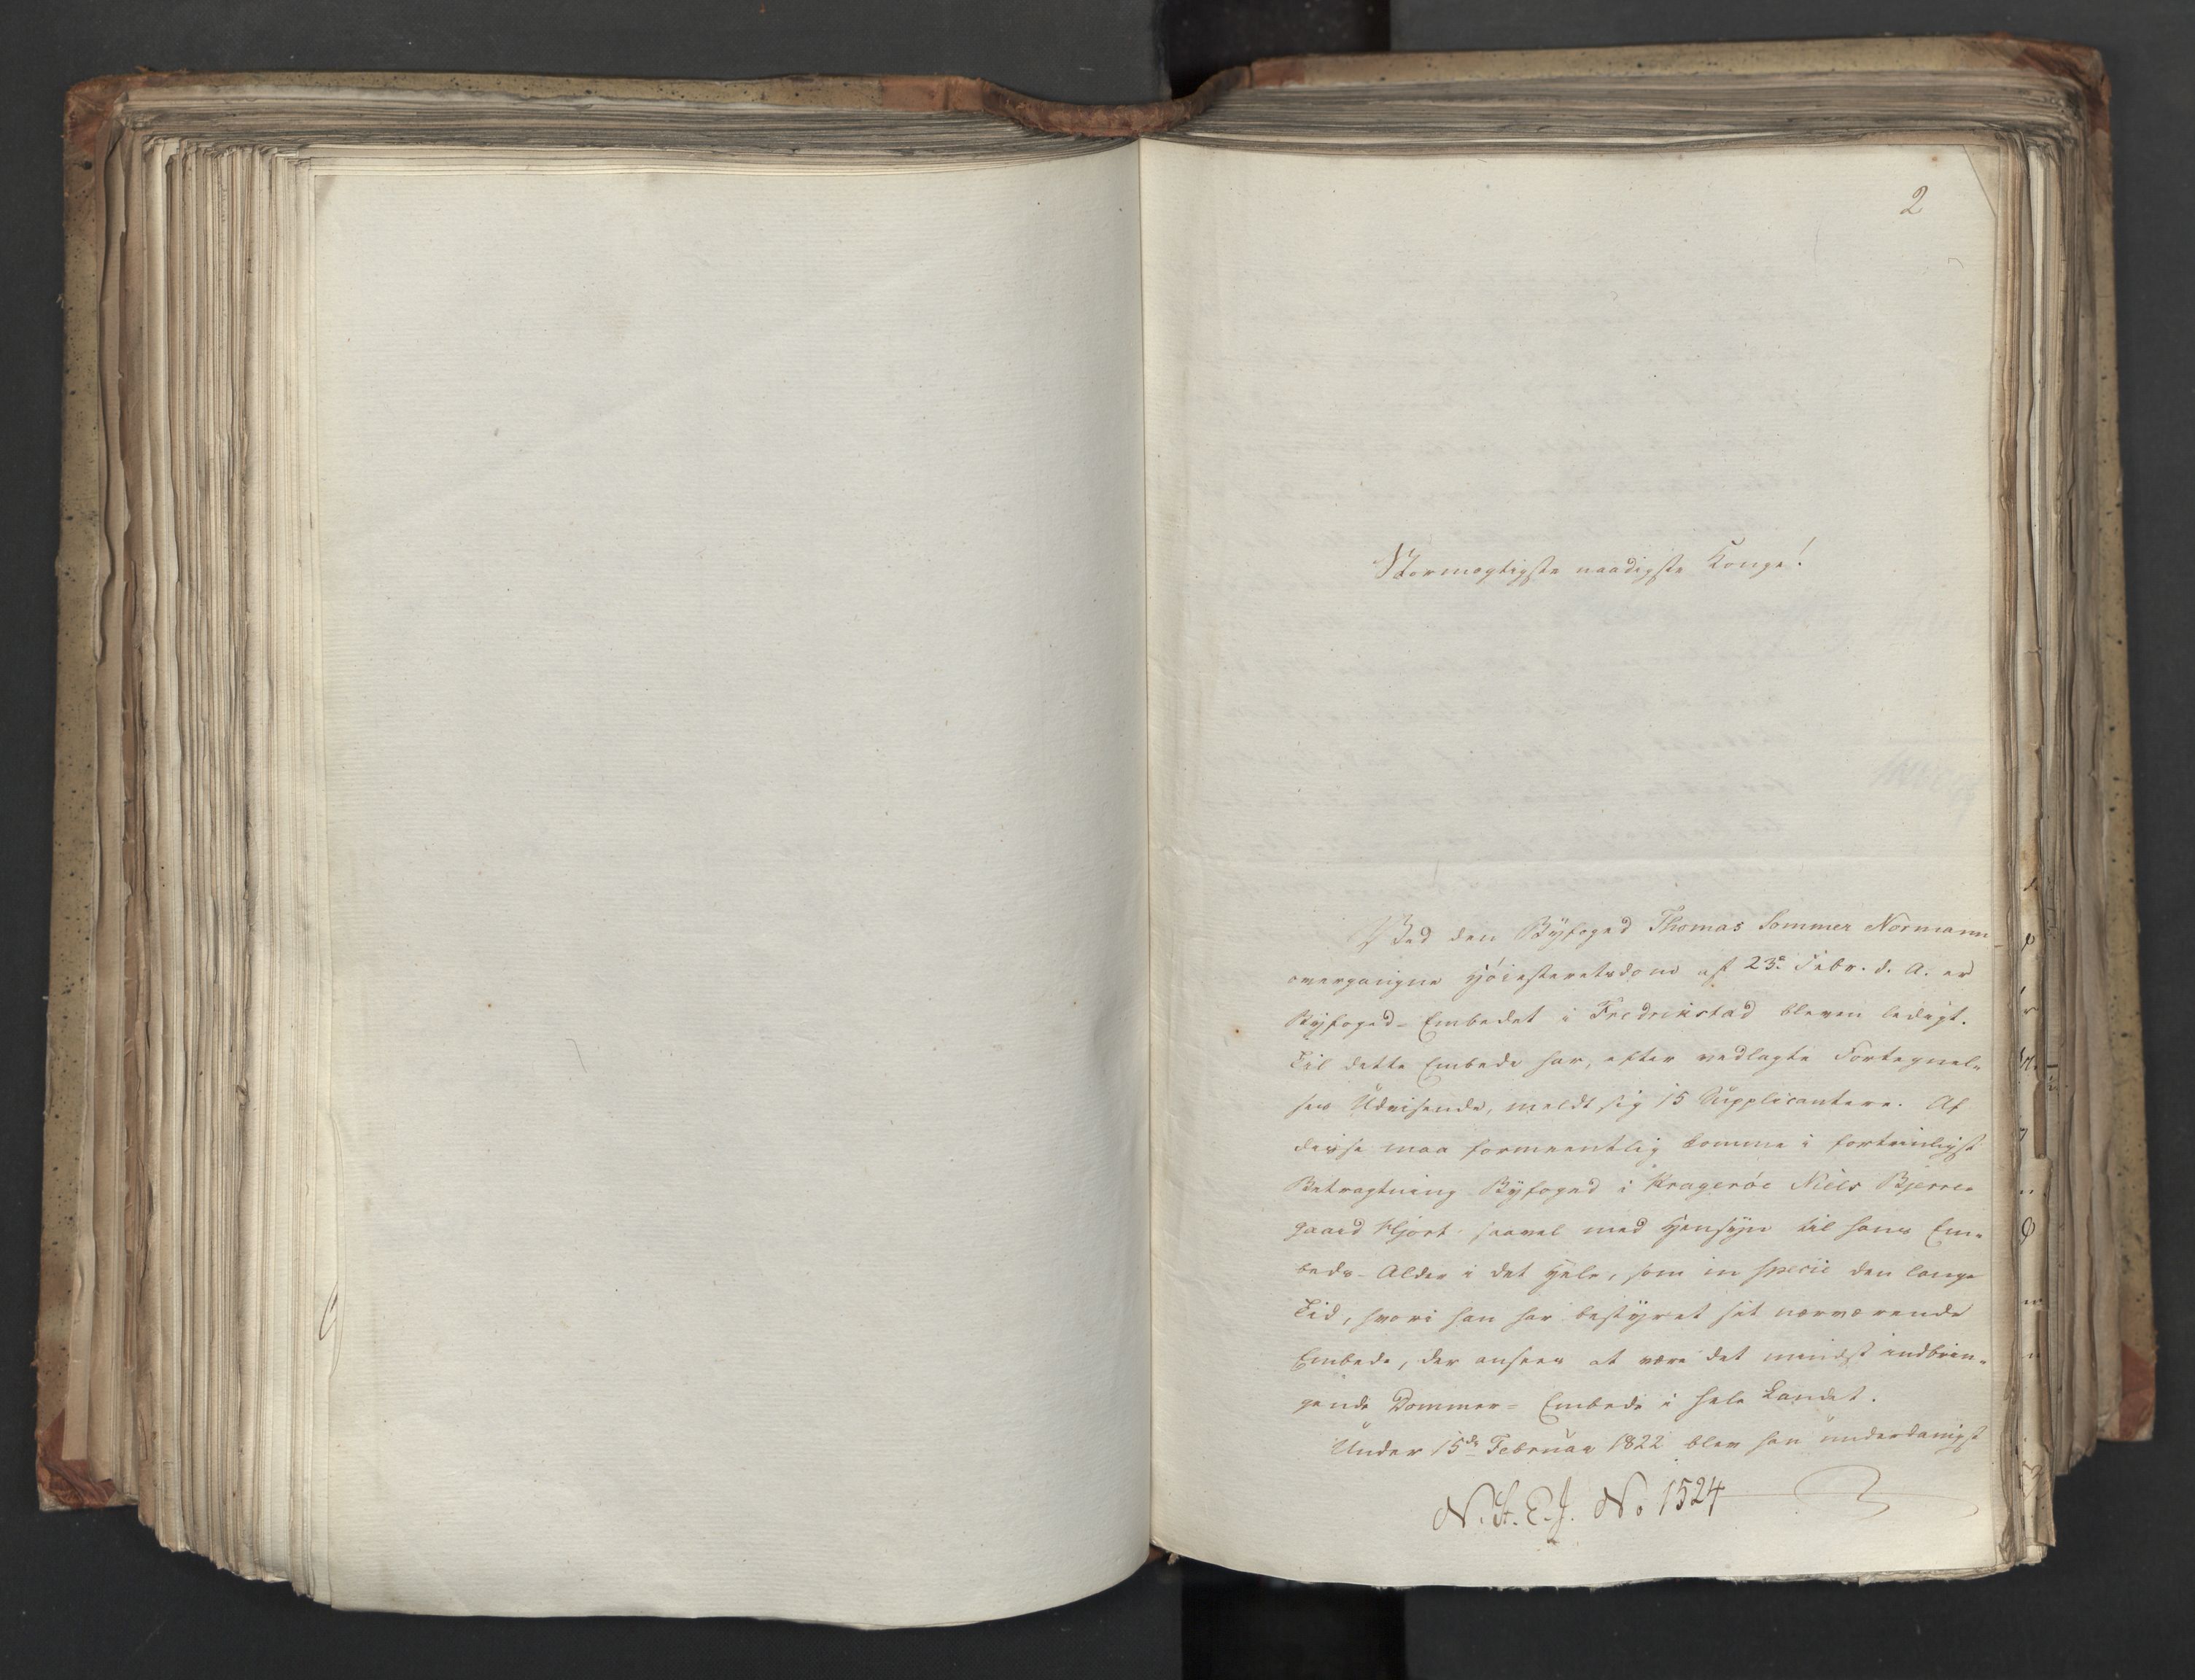 2
Stormægtigste naadigste Konge!
Ved den Byfoged Thomas Sommer Normann
overgangne Høiesteretsdom af 23de Febr. d. A. er
Byfoged-Embedet i Fredrikstad bleven ledigt.
Til dette Embede har, efter vedlagte Fortegnel-
ses Udvisende, meldt sig 15 Supplicantere. Af
disse maa formeentlig komme i fortrinligst
Betragtning Byfoged i Kragerøe Niels Bjerre-
gaard Hjort saavel med Hensyn til hans Em-
beds-Alder i det Hele, som in specie den lange
Tid, hvori han har bestyret sit nærværende
Embede, der ansees at være det mindst indbrin-
gende Dommer-Embede i hele Landet.
Under 15de Februar 1822 blev han underdanigst
N. St. E. J. No 1524